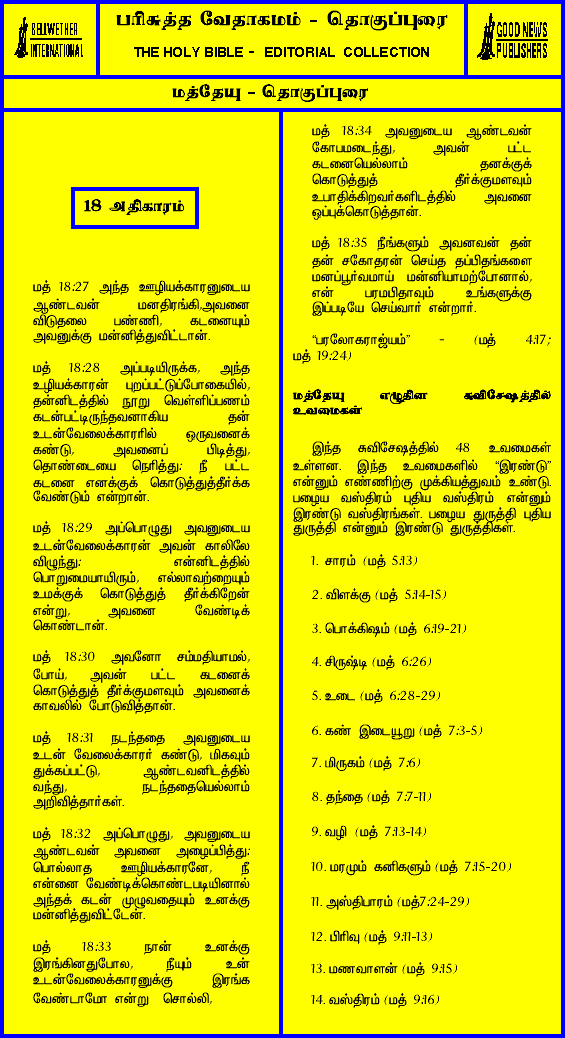 BELLWETHER
INTERNATIONAL
பரிசுத்த வேதாகமம் - தொகுப்புரை
THE HOLY BIBLE - EDITORIAL COLLECTION
GOOD NEWS
PUBLISHERS
மத்தேயு - தொகுப்புரை
18 அதிகாரம்
மத் 18:27 அந்த ஊழியக்காரனுடைய
ஆண்டவன் மனதிரங்கி,அவனை
விடுதலை பண்ணி, கடனையும்
அவனுக்கு மன்னித்துவிட்டான்.
மத் 18:28 அப்படியிருக்க, அந்த
உழியக்காரன் புறப்பட்டுப்போகையில்,
தன்னிடத்தில் நூறு வெள்ளிப்பணம்
கடன்பட்டிருந்தவனாகிய தன்
உடன்வேலைக்காரரில் ஒருவனைக்
கண்டு, அவனைப் பிடித்து,
தொண்டையை நெரித்து: நீ பட்ட
கடனை எனக்குக் கொடுத்துத்தீர்க்க
வேண்டும் என்றான்.
மத் 18:29 அப்பொழுது அவனுடைய
உடன்வேலைக்காரன் அவன் காலிலே
விழுந்து: என்னிடத்தில்
பொறுமையாயிரும், எல்லாவற்றையும்
உமக்குக் கொடுத்துத் தீர்க்கிறேன்
என்று, அவனை வேண்டிக்
கொண்டான்.
மத் 18:30 அவனோ சம்மதியாமல்,
போய், அவன் பட்ட கடனைக்
கொடுத்துத் தீர்க்குமளவும் அவனைக்
காவலில் போடுவித்தான்.
மத் 18:31 நடந்ததை அவனுடைய
உடன் வேலைக்காரர் கண்டு, மிகவும்
துக்கப்பட்டு, ஆண்டவனிடத்தில்
வந்து, நடந்ததையெல்லாம்
அறிவித்தார்கள்.
மத் 18:32 அப்பொழுது, அவனுடைய
ஆண்டவன் அவனை அழைப்பித்து:
பொல்லாத ஊழியக்காரனே, நீ
என்னை வேண்டிக்கொண்டபடியினால்
அந்தக் கடன் முழுவதையும் உனக்கு
மன்னித்துவிட்டேன்.
மத் 18:33 நான் உனக்கு
இரங்கினதுபோல, நீயும் உன்
உடன்வேலைக்காரனுக்கு இரங்க
வேண்டாமோ என்று சொல்லி,
மத் 18:34 அவனுடைய ஆண்டவன்
கோபமடைந்து, அவன் பட்ட
கடனையெல்லாம் தனக்குக்
கொடுத்துத் தீர்க்குமளவும்
உபாதிக்கிறவர்களிடத்தில் அவனை
ஒப்புக்கொடுத்தான்.
மத் 18:35 நீங்களும் அவனவன் தன்
தன் சகோதரன் செய்த தப்பிதங்களை
மனப்பூர்வமாய் மன்னியாமற்போனால்,
என் பரமபிதாவும் உங்களுக்கு
இப்படியே செய்வார் என்றார்.
“பரலோகராஜ்யம்” - (மத் 4:17;
மத் 19:24)
மத்தேயு எழுதின சுவிசேஷத்தில்
உவமைகள்
இந்த சுவிசேஷத்தில் 48 உவமைகள்
உள்ளன. இந்த உவமைகளில் “இரண்டு”
என்னும் எண்ணிற்கு முக்கியத்துவம் உண்டு.
பழைய வஸ்திரம் புதிய வஸ்திரம் என்னும்
இரண்டு வஸ்திரங்கள். பழைய துருத்தி புதிய
துருத்தி என்னும் இரண்டு துருத்திகள்.
1. சாரம் (மத் 5:13)
2. விளக்கு (மத் 5:14-15)
3. பொக்கிஷம் (மத் 6:19-21)
4. சிருஷ்டி (மத் 6:26)
5. உடை (மத் 6:28-29)
6. கண் இடையூறு (மத் 7:3-5)
7. மிருகம் (மத் 7:6)
8. தந்தை (மத் 7:7-11)
9. வழி (மத் 7:13-14)
10. மரமும் கனிகளும் (மத் 7:15-20)
11. அஸ்திபாரம் (மத்7:24-29)
12. பிரிவு (மத் 9:11-13)
13. மணவாளன் (மத் 9:15)
14. வஸ்திரம் (மத் 9:16)